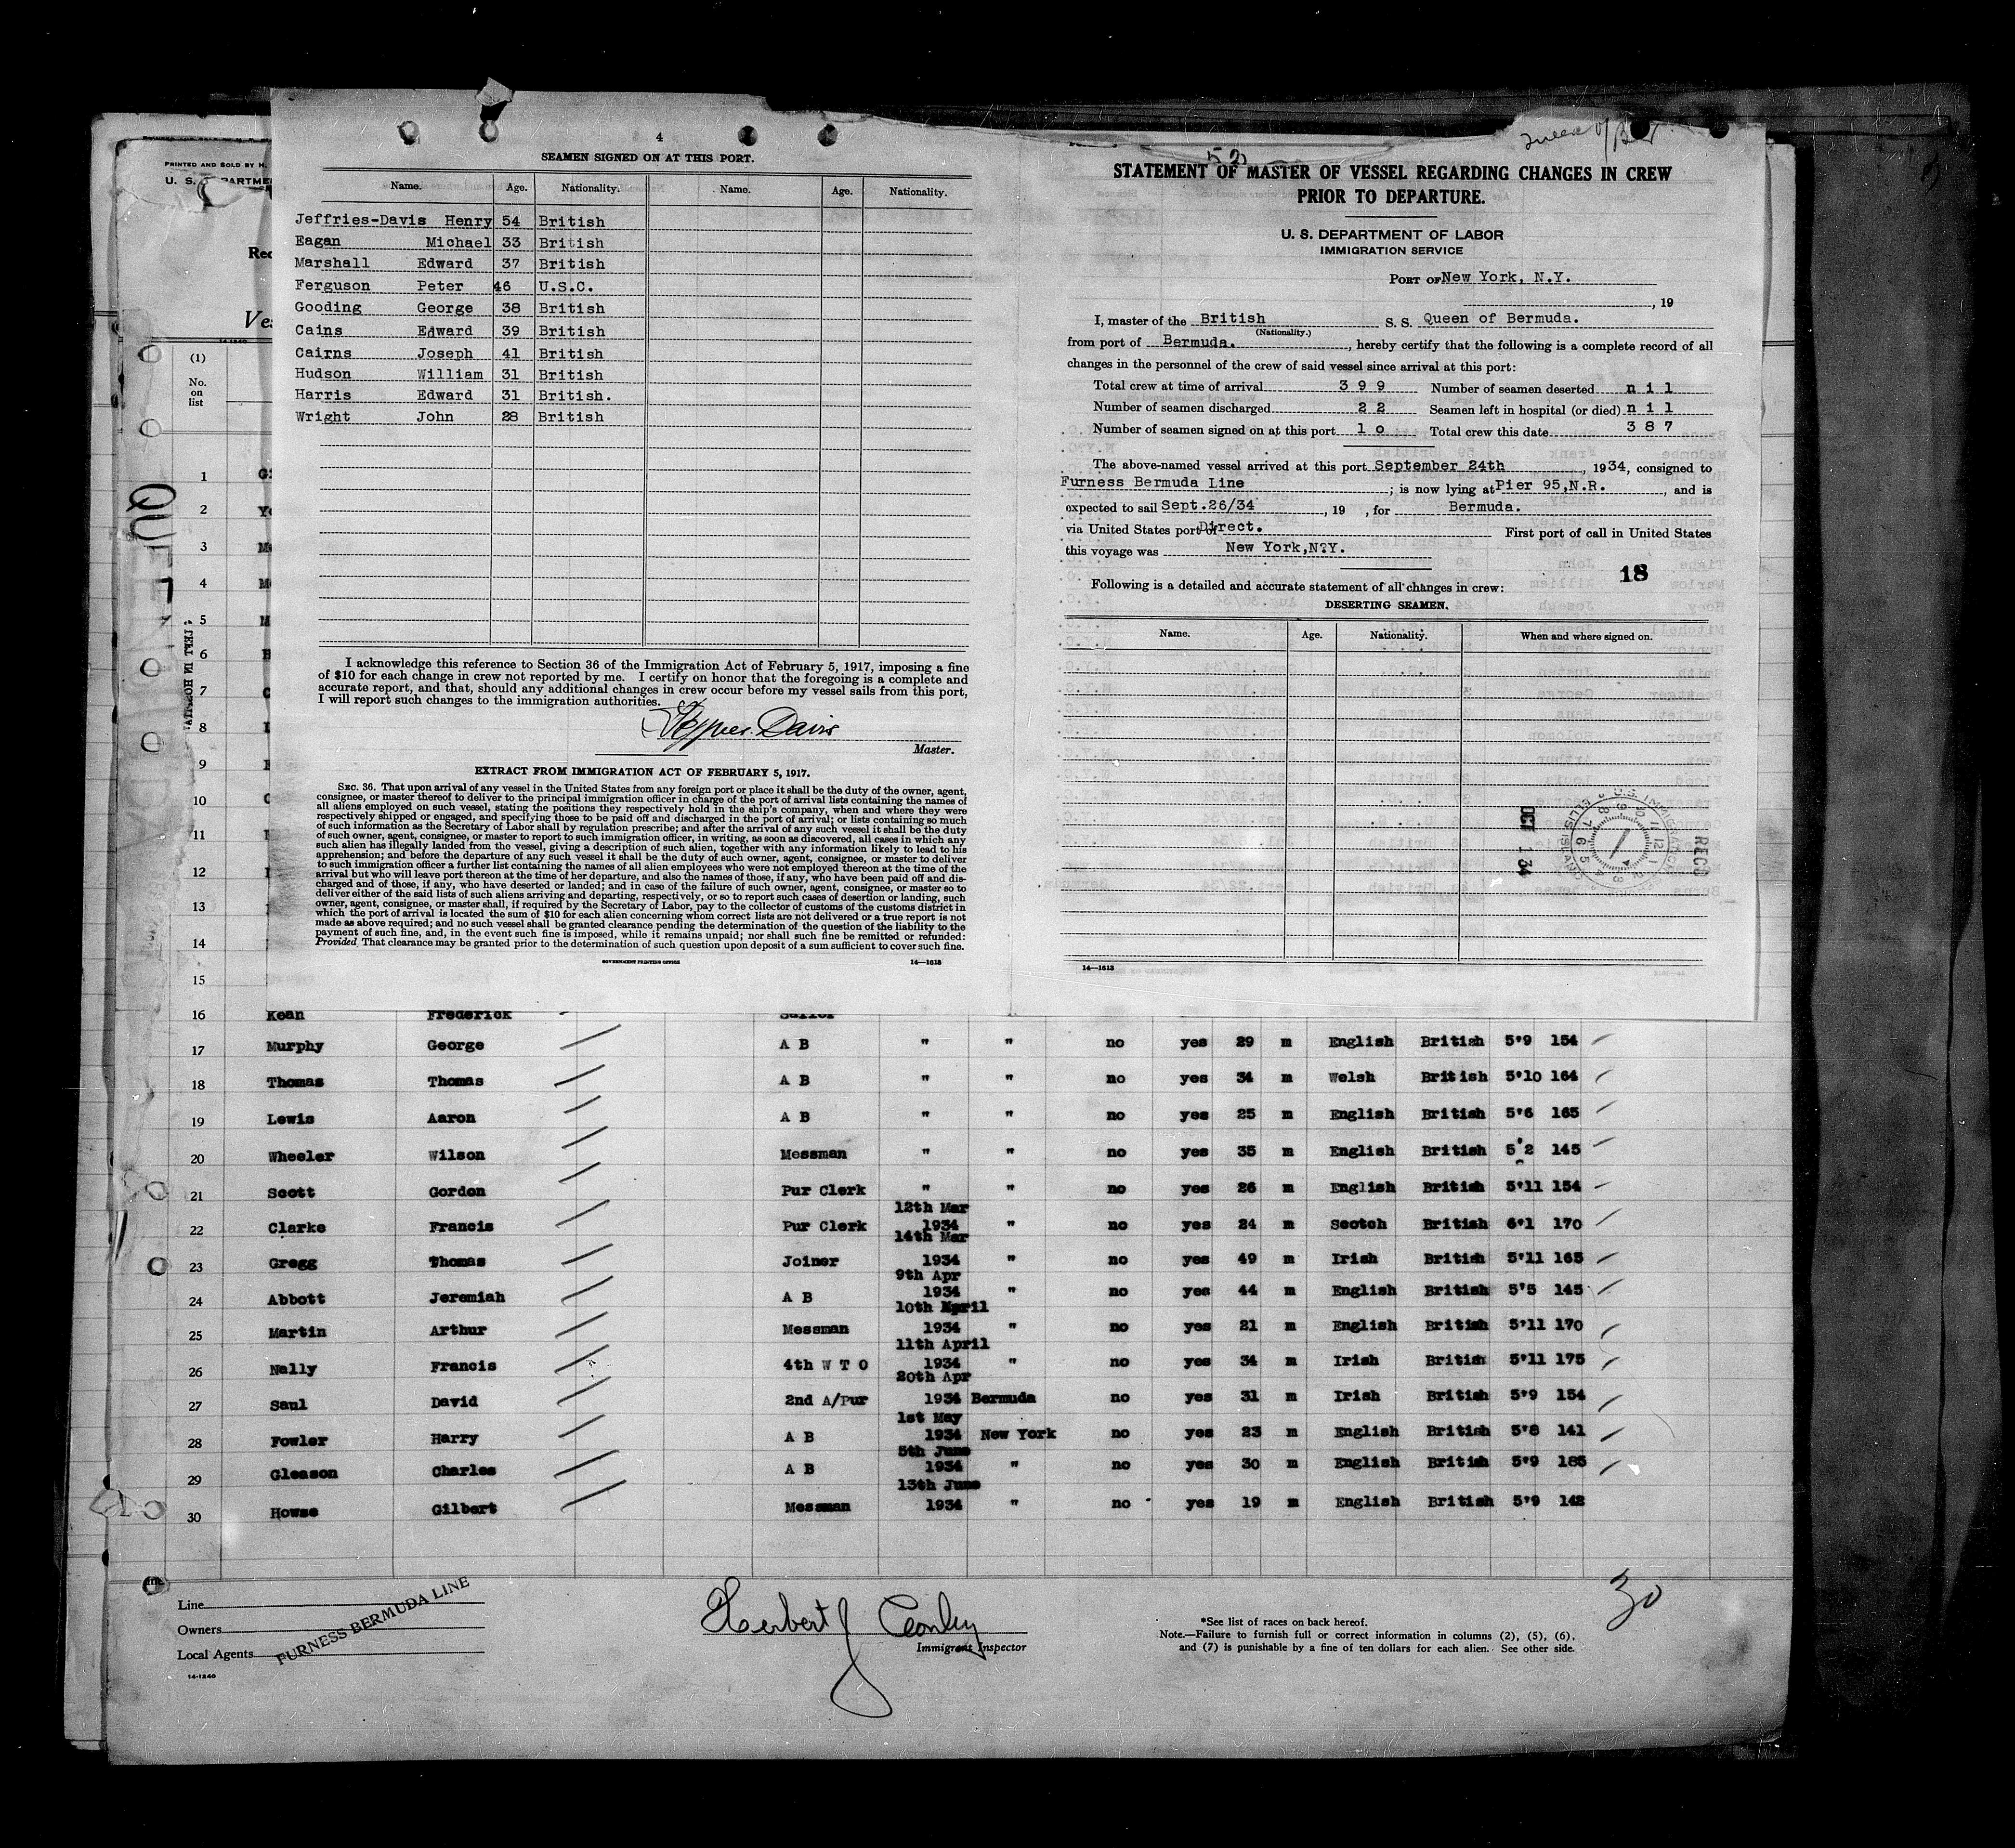 4
SEAMEN SIGNED ON AT THIS PORT.
Name. Age. Nationality. Name. Age. Nationality.
Jeffries-Davis Henry 54 British
Eagan Michael 33 British
Marshall Edward 37 British
Ferguson Peter 46 U.S.C.
Gooding George 38 British
Cains Edward 39 British
Cairns Joseph 41 British
Hudson William 31 British
Harris Edward 31 British.
Wright John 28 British
I acknowledge this reference to Section 36 of the Immigration Act of February 5, 1917, imposing a fine
of $10 for each change in crew not reported by me. I certify on honor that the foregoing is a complete and
accurate report, and that, should any additional changes in crew occur before my vessel sails from this port,
I will report such changes to the immigration authorities.
Davis
Master.
EXTRACT FROM IMMIGRATION ACT OF FEBRUARY 5, 1917.
SEC. 36. That upon arrival of any vessel in the United States from any foreign port or place it shall be the duty of the owner, agent,
consignee, or master thereof to deliver to the principal immigration officer in charge of the port of arrival lists containing the names of
all aliens employed on such vessel, stating the positions they respectively hold in the ship's company, when and where they were
respectively shipped or engaged, and specifying those to be paid off and discharged in the port of arrival; or lists containing so much
of such information as the Secretary of Labor shall by regulation prescribe; and after the arrival of any such vessel it shall be the duty
of such owner, agent, consignee, or master to report to such immigration officer, in writing, as soon as discovered, all cases in which any
such alien has illegally landed from the vessel, giving a description of such alien, together with any information likely to lead to his
apprehension; and before the departure of any such vessel it shall be the duty of such owner, agent, consignee, or master to deliver
to such immigration officer a further list containing the names of all alien employees who were not employed thereon at the time of the
arrival but who will leave port thereon at the time of her departure, and also the names of those, if any, who have been paid off and dis-
charged and of those, if any, who have deserted or landed; and in case of the failure of such owner, agent, consignee, or master so to
deliver either of the said lists of such aliens arriving and departing, respectively, or so to report such cases of desertion or landing, such
owner, agent, consignee, or master shall, if required by the Secretary of Labor, pay to the collector of customs of the customs district in
which the port of arrival is located the sum of $10 for each alien concerning whom correct lists are not delivered or a true report is not
made as above required; and no such vessel shall be granted clearance pending the determination of the question of the liability to the
payment of such fine, and, in the event such fine is imposed, while it remains unpaid; nor shall such fine be remitted or refunded:
Provided That clearance may be granted prior to the determination of such question upon deposit of a sum sufficient to cover such fine.
GOVERNMENT PRINTING OFFICE 14—1613
STATEMENT OF MASTER OF VESSEL REGARDING CHANGES IN CREW
PRIOR TO DEPARTURE.
U. S. DEPARTMENT OF LABOR
IMMIGRATION SERVICE
PORT OF New York, N.Y.
, 19
I, master of the British S. S. Queen of Bermuda.
(Nationality.)
from port of Bermuda. , hereby certify that the following is a complete record of all
changes in the personnel of the crew of said vessel since arrival at this port:
Total crew at time of arrival 3 9 9 Number of seamen deserted n i l
Number of seamen discharged 2 2 Seamen left in hospital (or died) n i l
Number of seamen signed on at this port 1 o Total crew this date 3 8 7
The above-named vessel arrived at this port September 24th , 1934, consigned to
Furness Bermuda Line ; is now lying at Pier 95,N.R. , and is
expected to sail Sept.26/34 , 19 , for Bermuda.
via United States port of Direct. First port of call in United States
this voyage was New York,N.Y.
18
Following is a detailed and accurate statement of all changes in crew:
DESERTING SEAMEN.
Name. Age. Nationality. When and where signed on.
OCT 1 34
U.S. IMMIGRATION
ELLIS ISLAND
REC'D
14—1613
PRINTED AND SOLD BY H.
U. S. DEPARTME
Rec
Ves
14-1240
(1)
No.
on
list
QUEEN
1
2
3
4
5
6
7
8
9
10
11
12
13
14
15
16 Kean Frederick Sailor
17 Murphy George A B " " no yes 29 m English British 5'9 154
18 Thomas Thomas A B " " no yes 34 m Welsh British 5'10 164
19 Lewis Aaron A B " " no yes 25 m English British 5'6 165
20 Wheeler Wilson Messman " " no yes 35 m English British 5'2 145
21 Scott Gordon Pur Clerk " " no yes 26 m English British 5'11 154
12th Mar
22 Clarke Francis Pur Clerk 1934 " no yes 24 m Scotch British 6'1 170
14th Mar
23 Gregg Thomas Joiner 1934 " no yes 49 m Irish British 5'11 165
9th Apr
24 Abbott Jeremiah A B 1934 " no yes 44 m English British 5'5 145
10th April
25 Martin Arthur Messman 1934 " no yes 21 m English British 5'11 170
11th April
26 Nally Francis 4th W T O 1934 " no yes 34 m Irish British 5'11 175
20th Apr
27 Saul David 2nd A/Pur 1934 Bermuda no yes 31 m Irish British 5'9 154
1st May
28 Fowler Harry A B 1934 New York no yes 23 m English British 5'8 141
5th June
29 Gleason Charles A B 1934 " no yes 30 m English British 5'9 185
13th June
30 Howse Gilbert Messman 1934 " no yes 19 m English British 5'9 142
30
Line
Owners
Local Agents
FURNESS BERMUDA LINE
14-1240
Herbert J Conley
Immigrant Inspector
*See list of races on back hereof.
Note.—Failure to furnish full or correct information in columns (2), (5), (6),
and (7) is punishable by a fine of ten dollars for each alien. See other side.